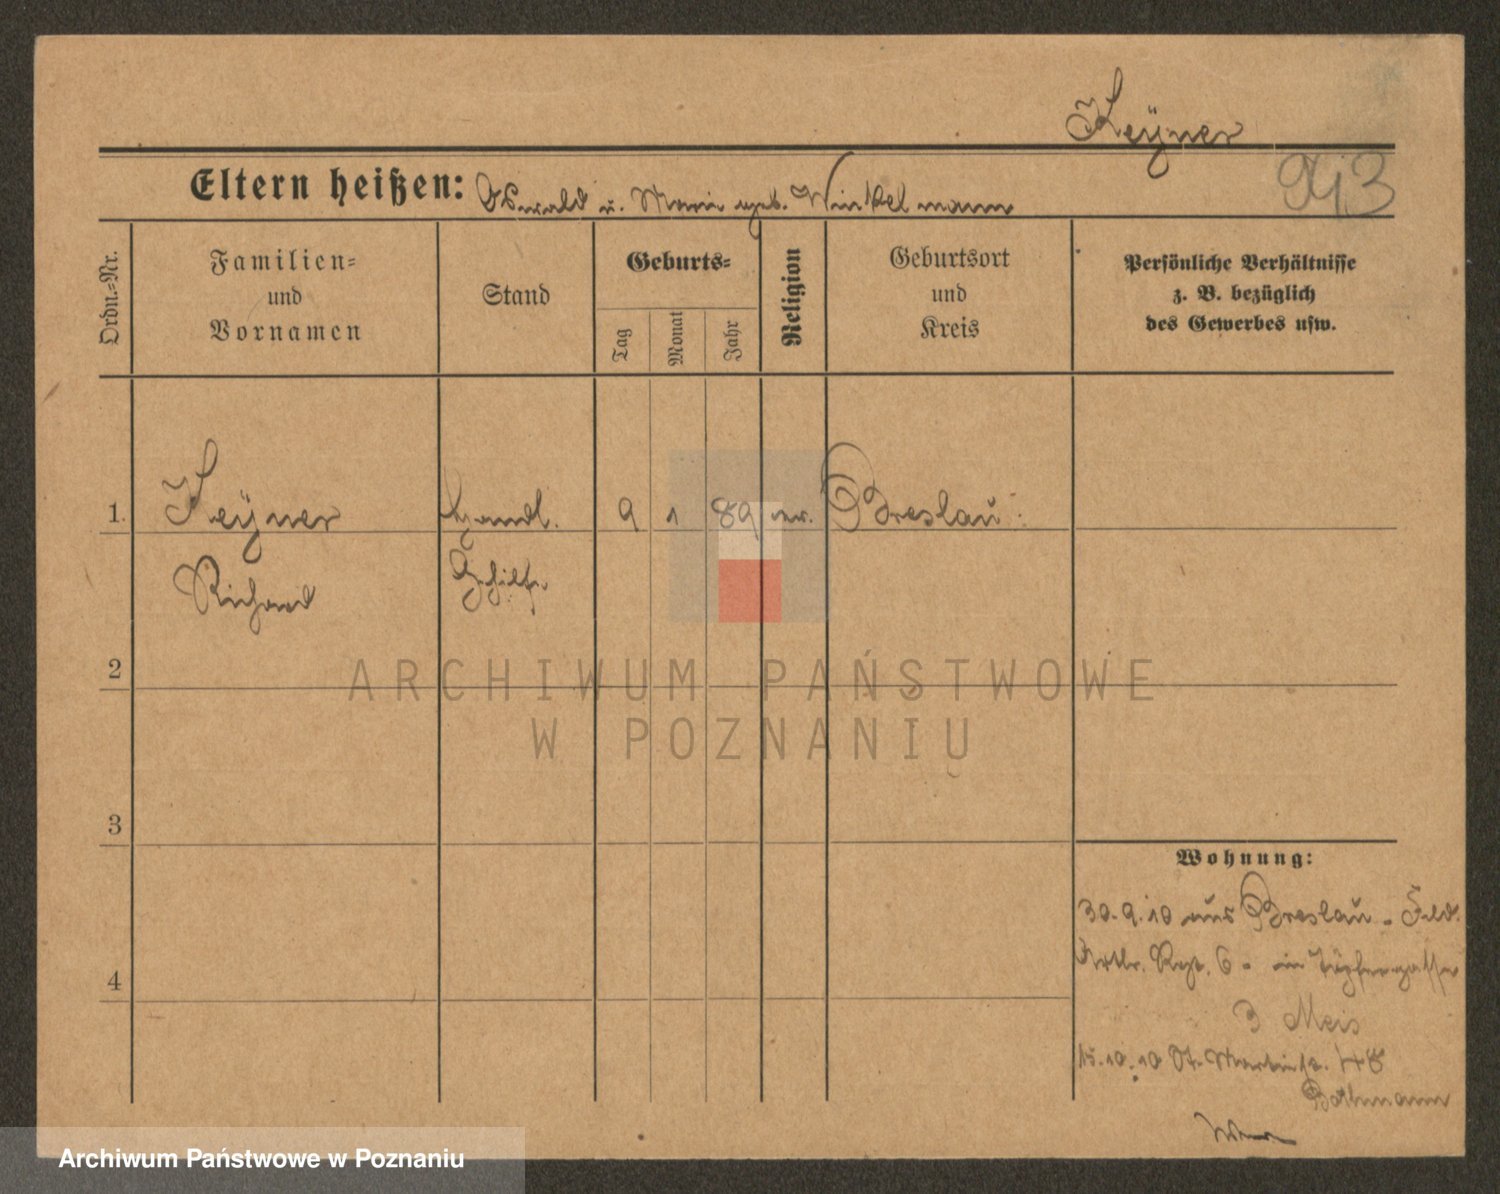 Keÿner
Eltern heißen: Oswald u. Marie geb. Winkelmann
Ordn.=Nr.
Familien=
und
Vornamen
Stand
Geburts=
Tag
Monat
Jahr
Religion
Geburtsort
und
Kreis
Persönliche Verhältnisse
z. B. bezüglich
des Gewerbes usw.
1. Keÿner Handl. 9 1 89 ev. Breslau
Richard Gehilfe
2
3
4
Wohnung:
30.9.10 aus Breslau - Feld.
Artlr. Rgt. 6 - in Töpfergasse
3 Meis
15.10.10 St. Martinstr. 48
Bothmann
ARCHIWUM PAŃSTWOWE
W POZNANIU
Archiwum Państwowe w Poznaniu